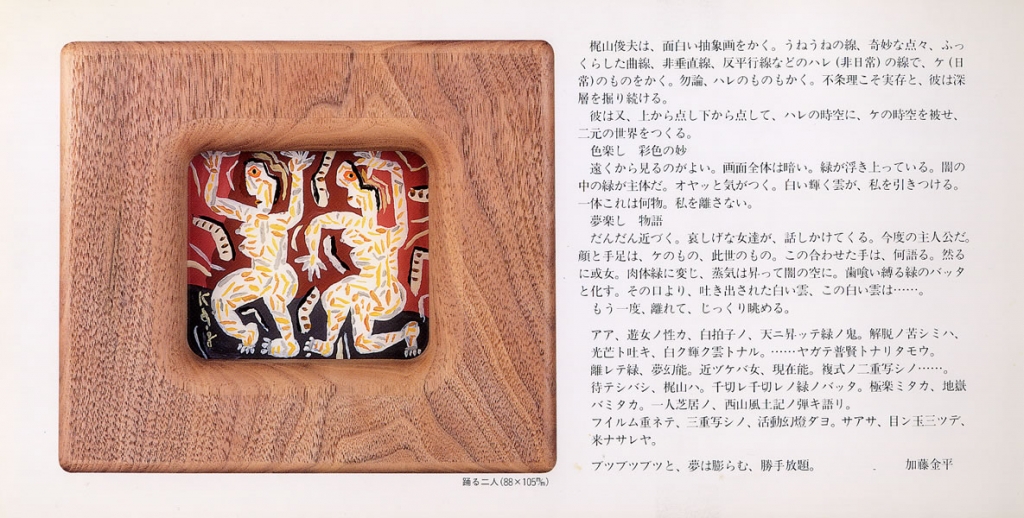 梶山俊夫は、面白い抽象画をかく。うねうねの線、奇妙な点々、ふっ
くらした曲線、非垂直線、反平行線などのハレ(非日常)の線で、ケ(日
常)のものをかく。勿論、ハレのものもかく。不条理こそ実存と、彼は深
層を掘り続ける。
彼は又、上から点し下から点して、ハレの時空に、ケの時空を被せ、
二元の世界をつくる。
色楽し 彩色の妙
遠くから見るのがよい。画面全体は暗い。緑が浮き上っている。闇の
中の緑が主体だ。オヤッと気がつく。白い輝く雲が、私を引きつける。
一体これは何物。私を離さない。
夢楽し 物語
だんだん近づく。哀しげな女達が、話しかけてくる。今度の主人公だ。
顔と手足は、ケのもの、此世のもの。この合わせた手は、何語る。然る
に或女。肉体緑に変じ、蒸気は昇って闇の空に。歯喰い縛る緑のバッタ
と化す。その口より、吐き出された白い雲、この白い雲は……。
もう一度、離れて、じっくり眺める。
アア、遊女ノ性カ、白拍子ノ、天ニ昇ッテ緑ノ鬼。解脱ノ苦シミハ、
光芒ト吐キ、白ク輝ク雲トナル。……ヤガテ普賢トナリタモウ。
離レテ緑、夢幻能。近ヅケバ女、現在能。複式ノ二重写シノ……。
待テシバシ、梶山ハ。千切レ千切レノ緑ノバッタ。極楽ミタカ、地嶽
バミタカ。一人芝居ノ、西山風土記ノ弾キ語リ。
フイルム重ネテ、三重写シノ、活動幻燈ダヨ。サアサ、目ン玉三ツデ、
来ナサレヤ。
ブツブツブツと、夢は膨らむ、勝手放題。 加藤金平
踊る二人(88×105㎜)